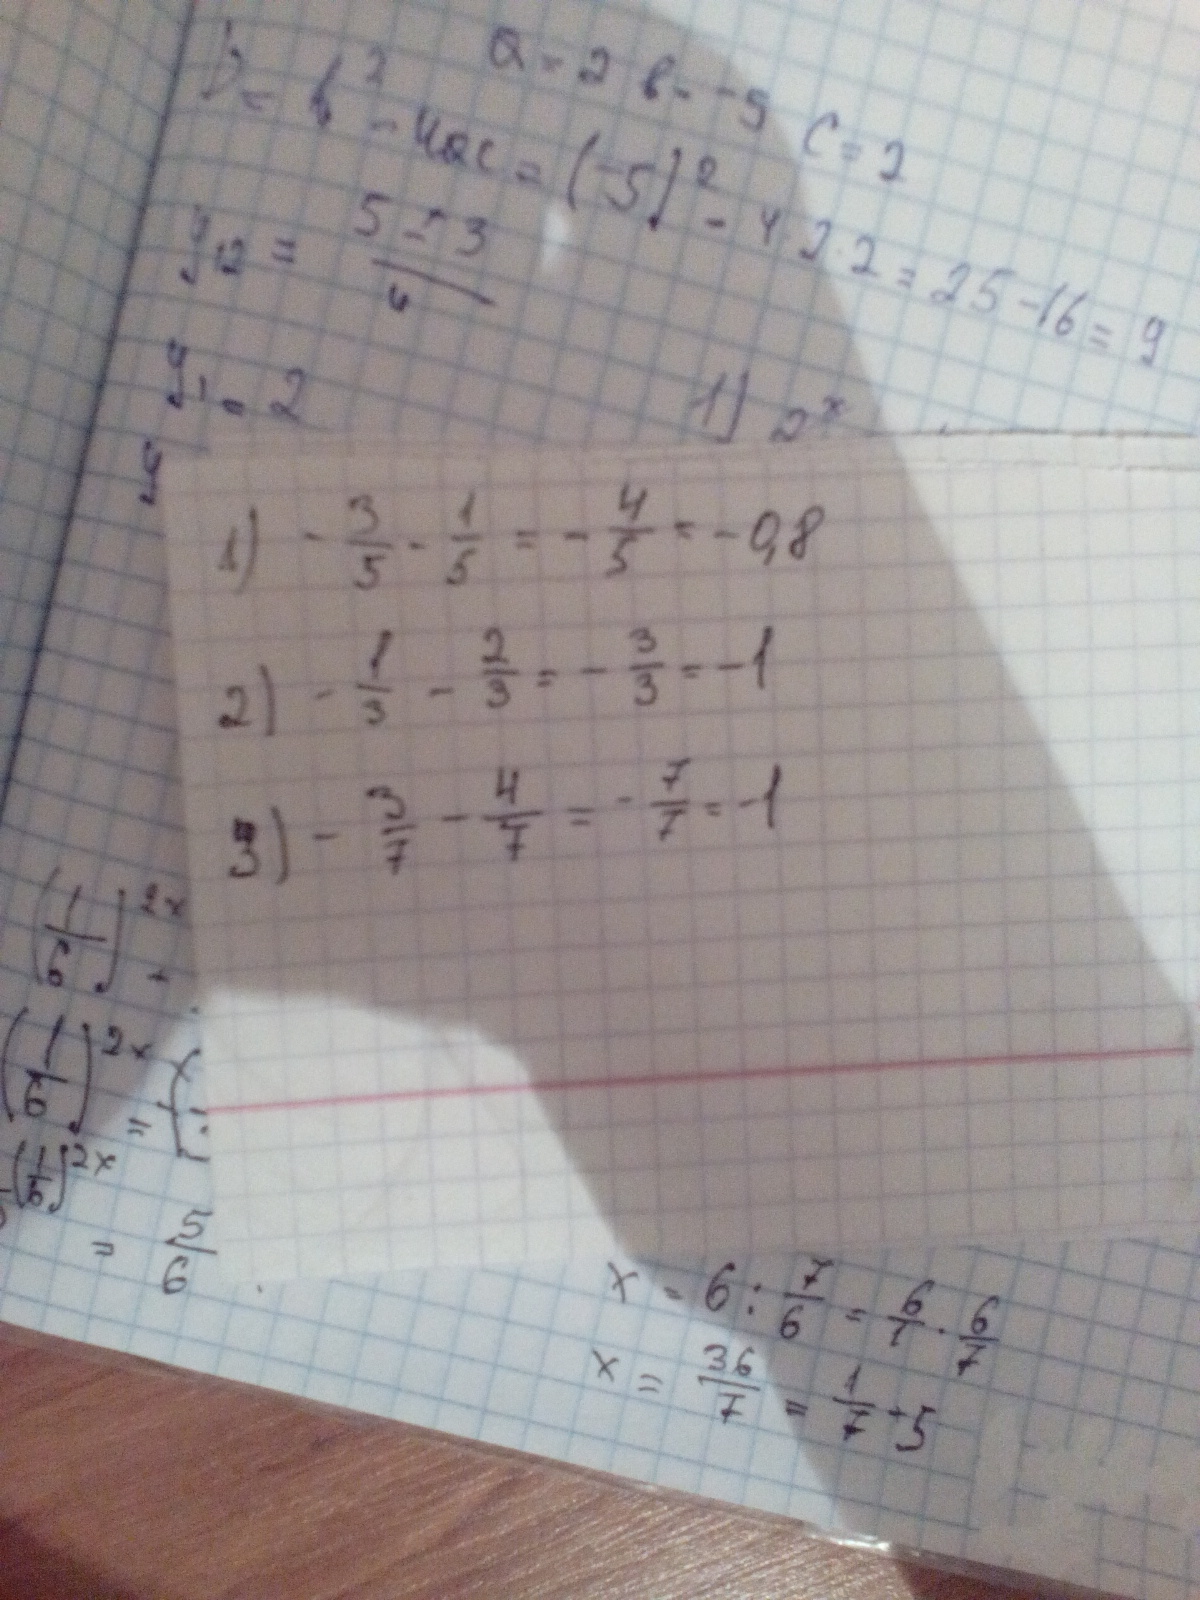 a = 2 b = -5 c = 2
D = b² - 4ac = (-5)² - 4·2·2 = 25 - 16 = 9
y₁₂ = (5 ± 3)/4
y₁ = 2
1) 2ˣ
y
1) - 3/5 - 1/5 = - 4/5 = - 0,8
2) - 1/3 - 2/3 = - 3/3 = - 1
3) - 3/7 - 4/7 = - 7/7 = - 1
(1/6)²ˣ -
(1/6)²ˣ = (
(1/6)²ˣ
= 5/6
x = 6 : 7/6 = 6/1 · 6/7
x = 36/7 = 1/7 + 5